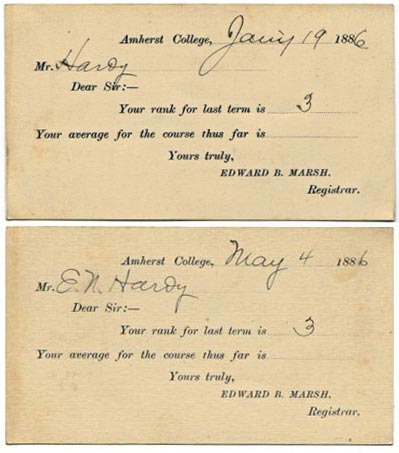 Amherst College, Jan'y 19 1886
Mr. Hardy
Dear Sir:—
Your rank for last term is 3
Your average for the course thus far is
Yours truly,
EDWARD B. MARSH,
Registrar.
Amherst College, May 4 1886
Mr. E. N. Hardy
Dear Sir:—
Your rank for last term is 3
Your average for the course thus far is
Yours truly,
EDWARD B. MARSH,
Registrar.